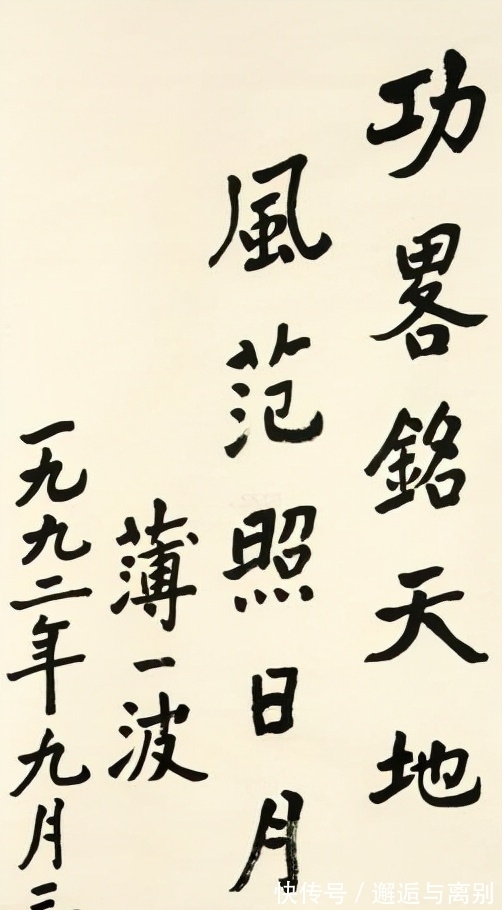 功畧銘天地
風范照日月
薄一波
一九九二年九月三
快传号/邂逅与离别